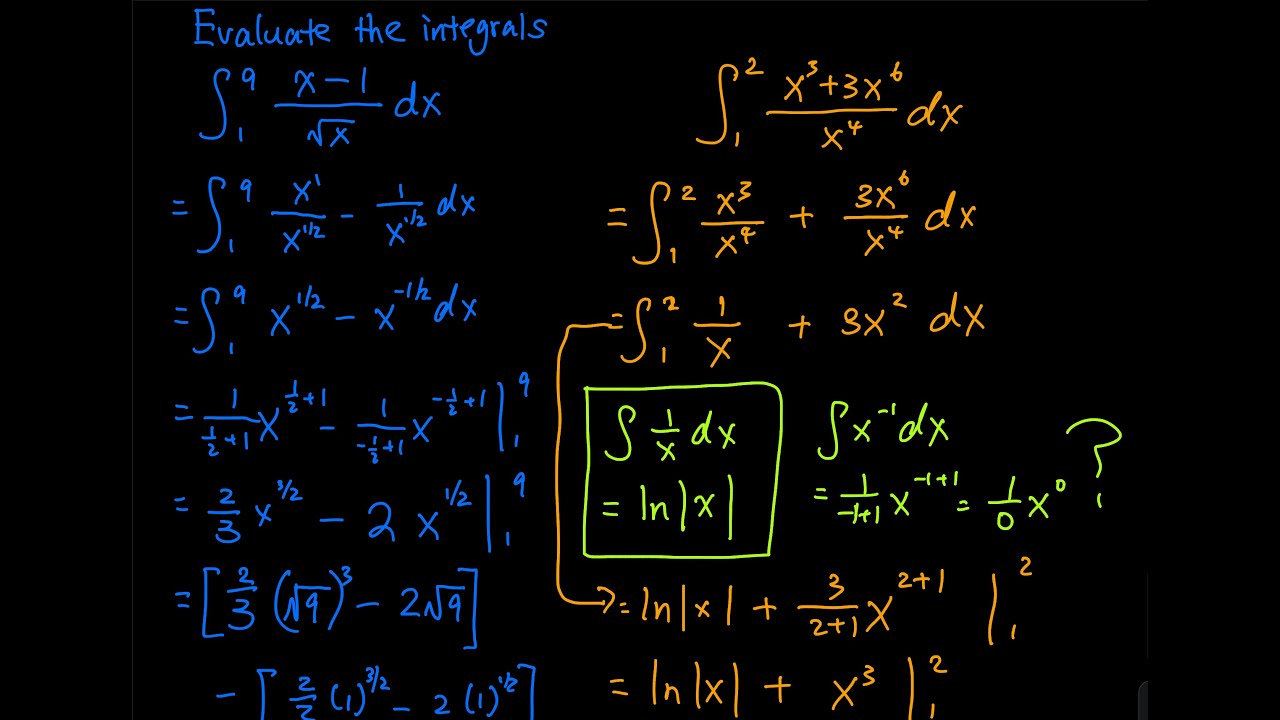 Evaluate the integrals
∫₁⁹ (x-1)/√x dx
= ∫₁⁹ x¹/x^(1/2) - 1/x^(1/2) dx
= ∫₁⁹ x^(1/2) - x^(-1/2) dx
= 1/(1/2+1) x^(1/2+1) - 1/(-1/2+1) x^(-1/2+1) |₁⁹
= 2/3 x^(3/2) - 2 x^(1/2) |₁⁹
= [2/3 (√9)³ - 2√9]
- [2/3 (1)^(3/2) - 2 (1)^(1/2)]
∫₁² (x³+3x⁶)/x⁴ dx
= ∫₁² x³/x⁴ + 3x⁶/x⁴ dx
= ∫₁² 1/x + 3x² dx
∫ 1/x dx
= ln|x|
∫ x⁻¹ dx
= 1/(-1+1) x^(-1+1) = 1/0 x⁰ ?
= ln|x| + 3/(2+1) x^(2+1) |₁²
= ln|x| + x³ |₁²